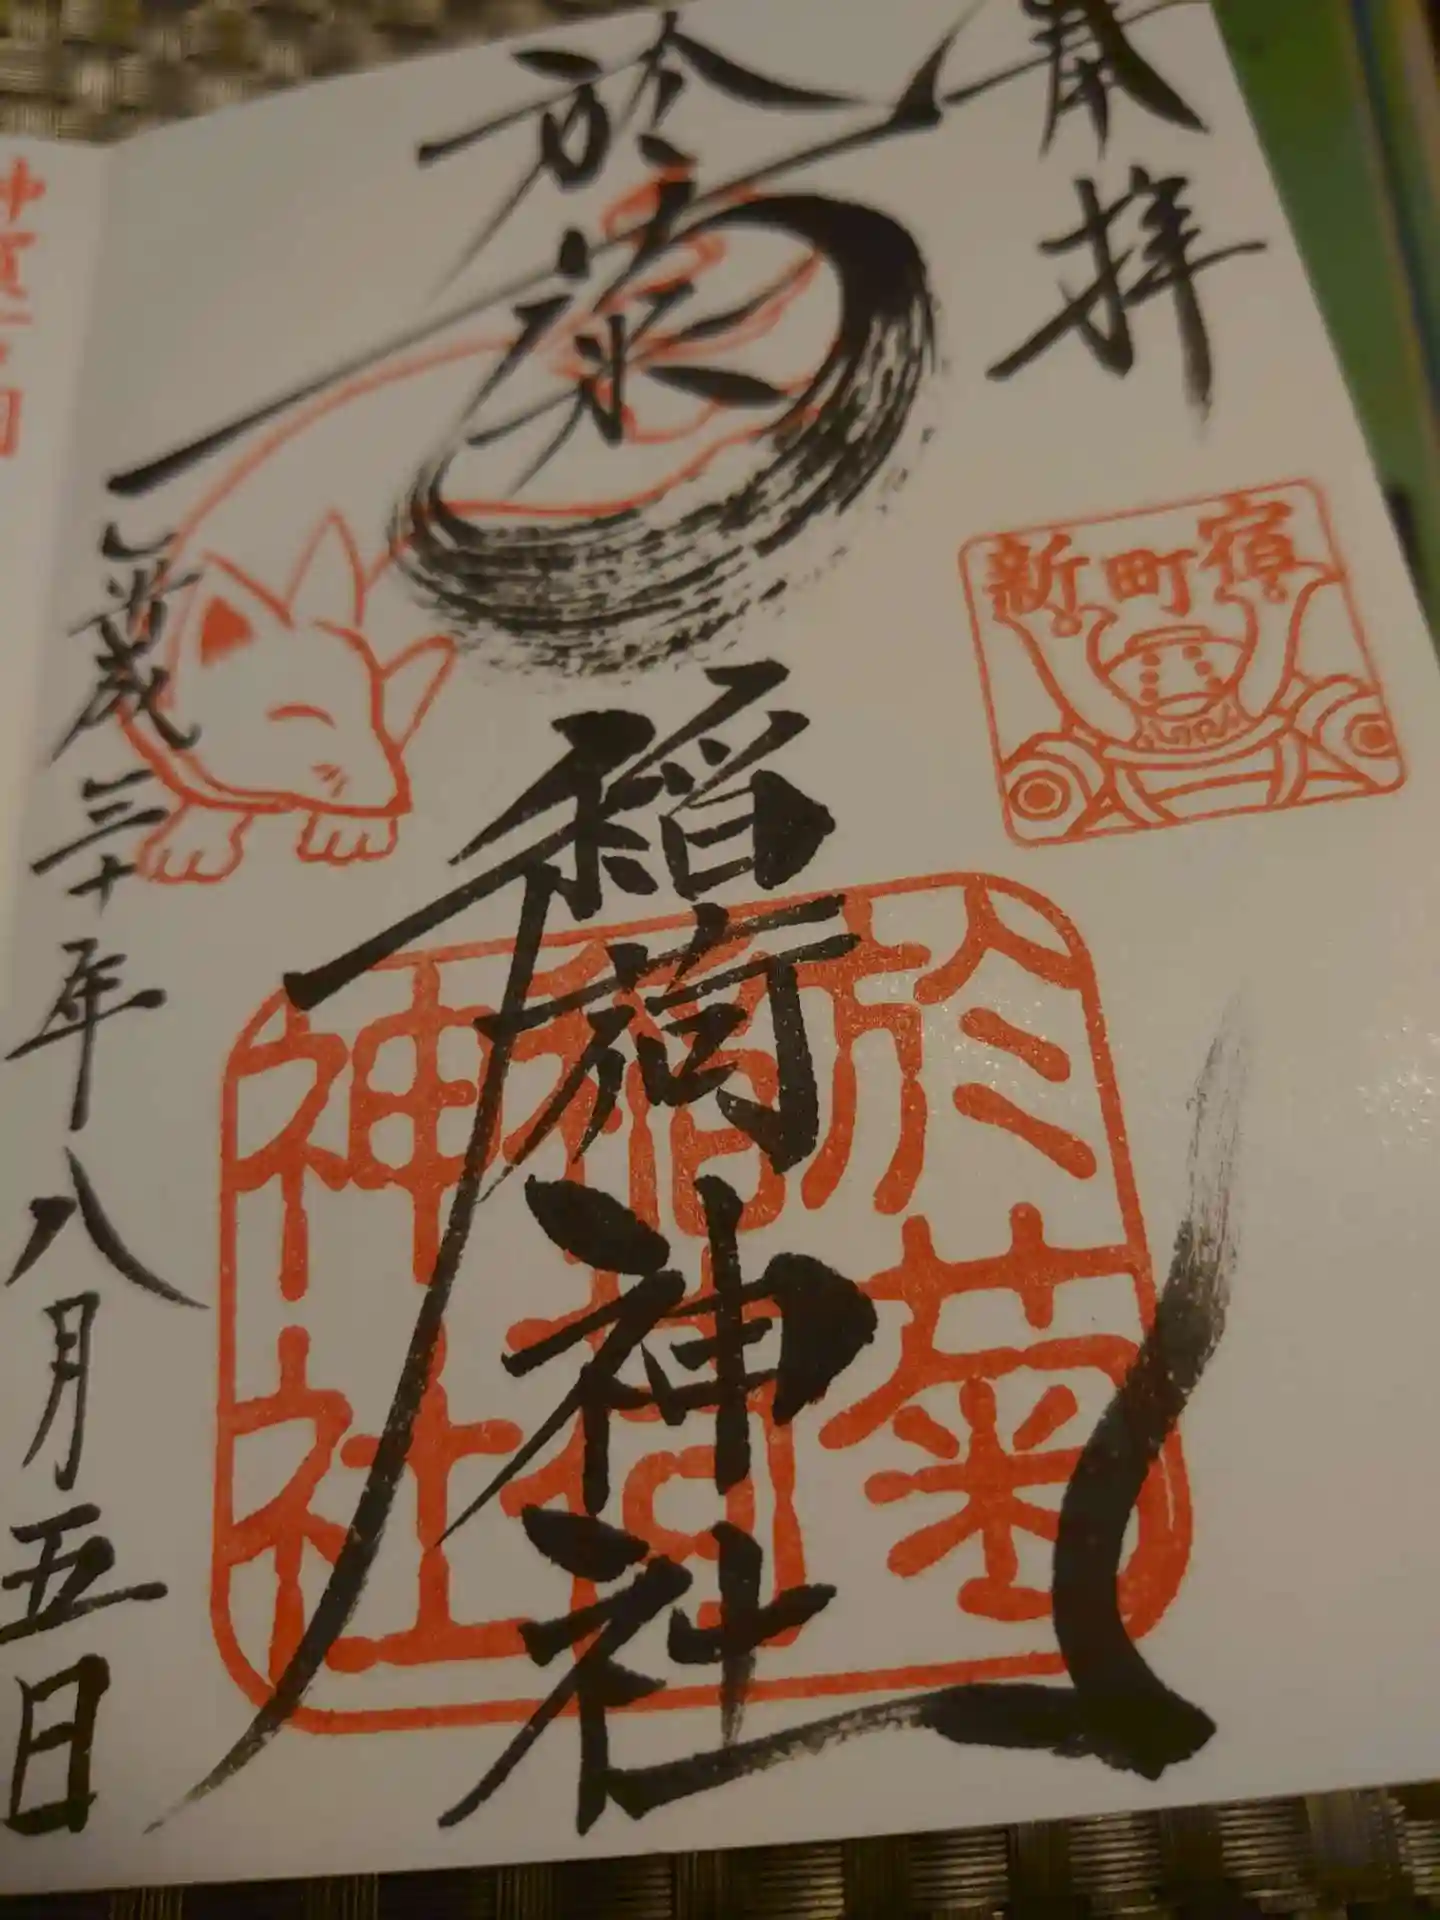 奉拝
新町宿
於菊稲荷神社
於菊
稲荷
神社
平成三十年八月五日